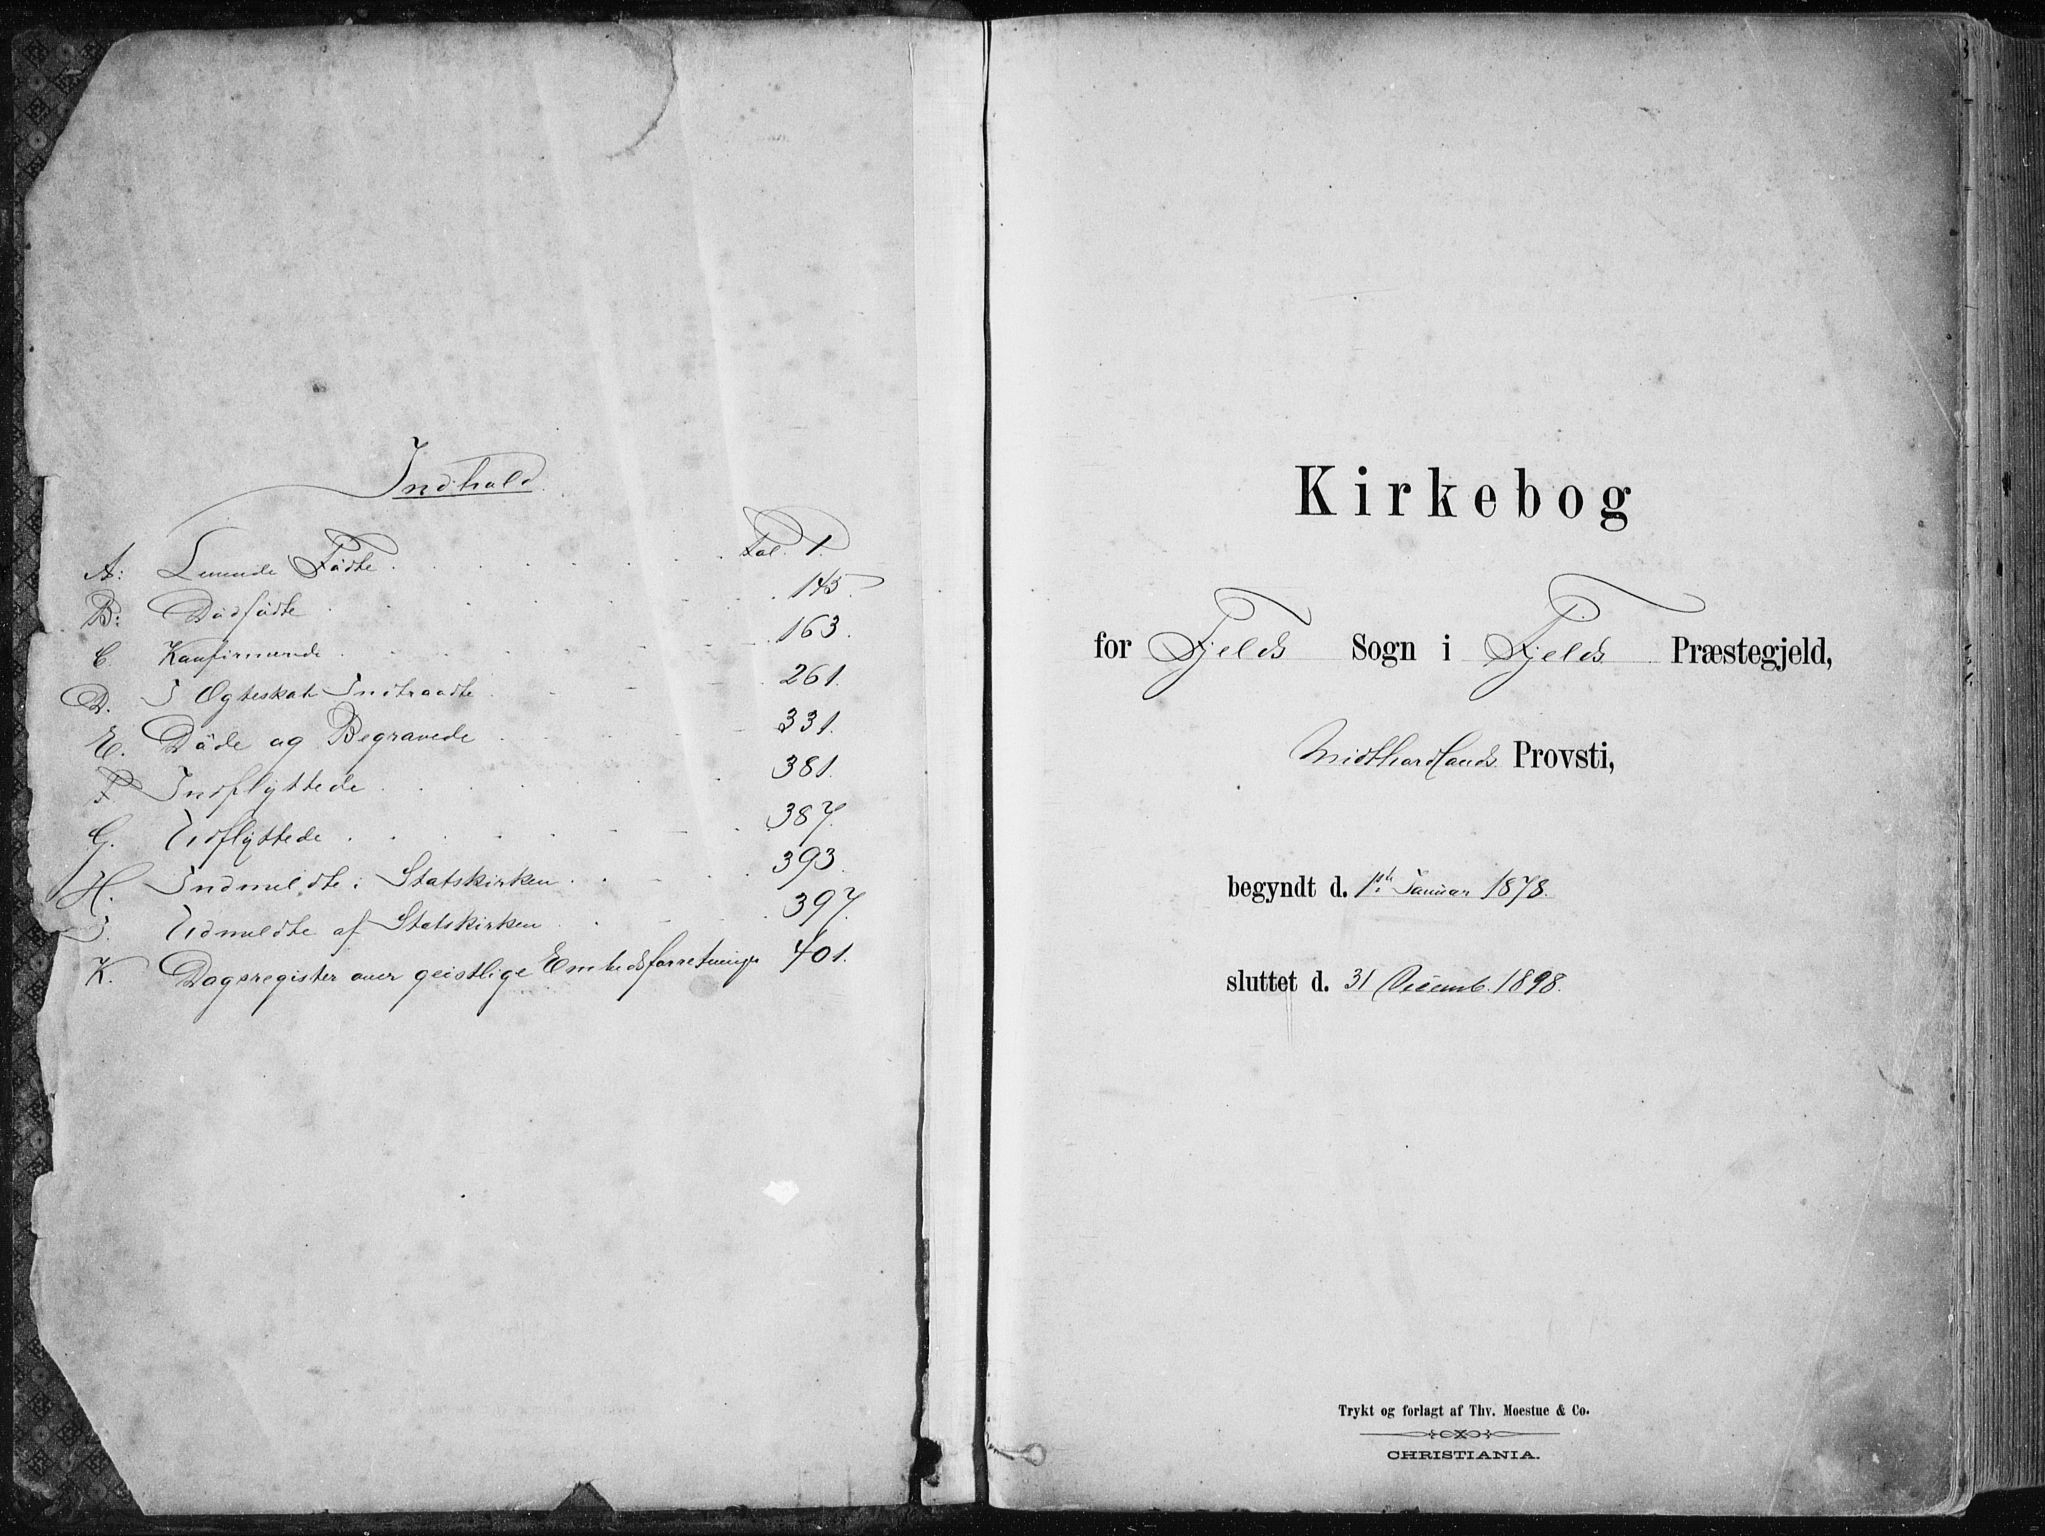 Indhold.
A: Levende Fødte. Fol. 1.
B: Dødfødte 145.
C. Konfirmerede. 163.
D. I Ægteskab Indtraadte 261.
E. Døde og Begravede 331.
F. Indflyttede 381.
G. Udflyttede 387.
H. Indmeldte i Statskirken. 393.
I. Udmeldte af Statskirken 397.
K. Dagsregister over geistlige Embedsforretninger 401.
Kirkebog
for Fjelds Sogn i Fjelds Præstegjeld,
Midthordlands Provsti,
begyndt d. 1ste Januar 1878.
sluttet d. 31 Decemb. 1898.
Trykt og forlagt af Thv. Moestue & Co.
CHRISTIANIA.